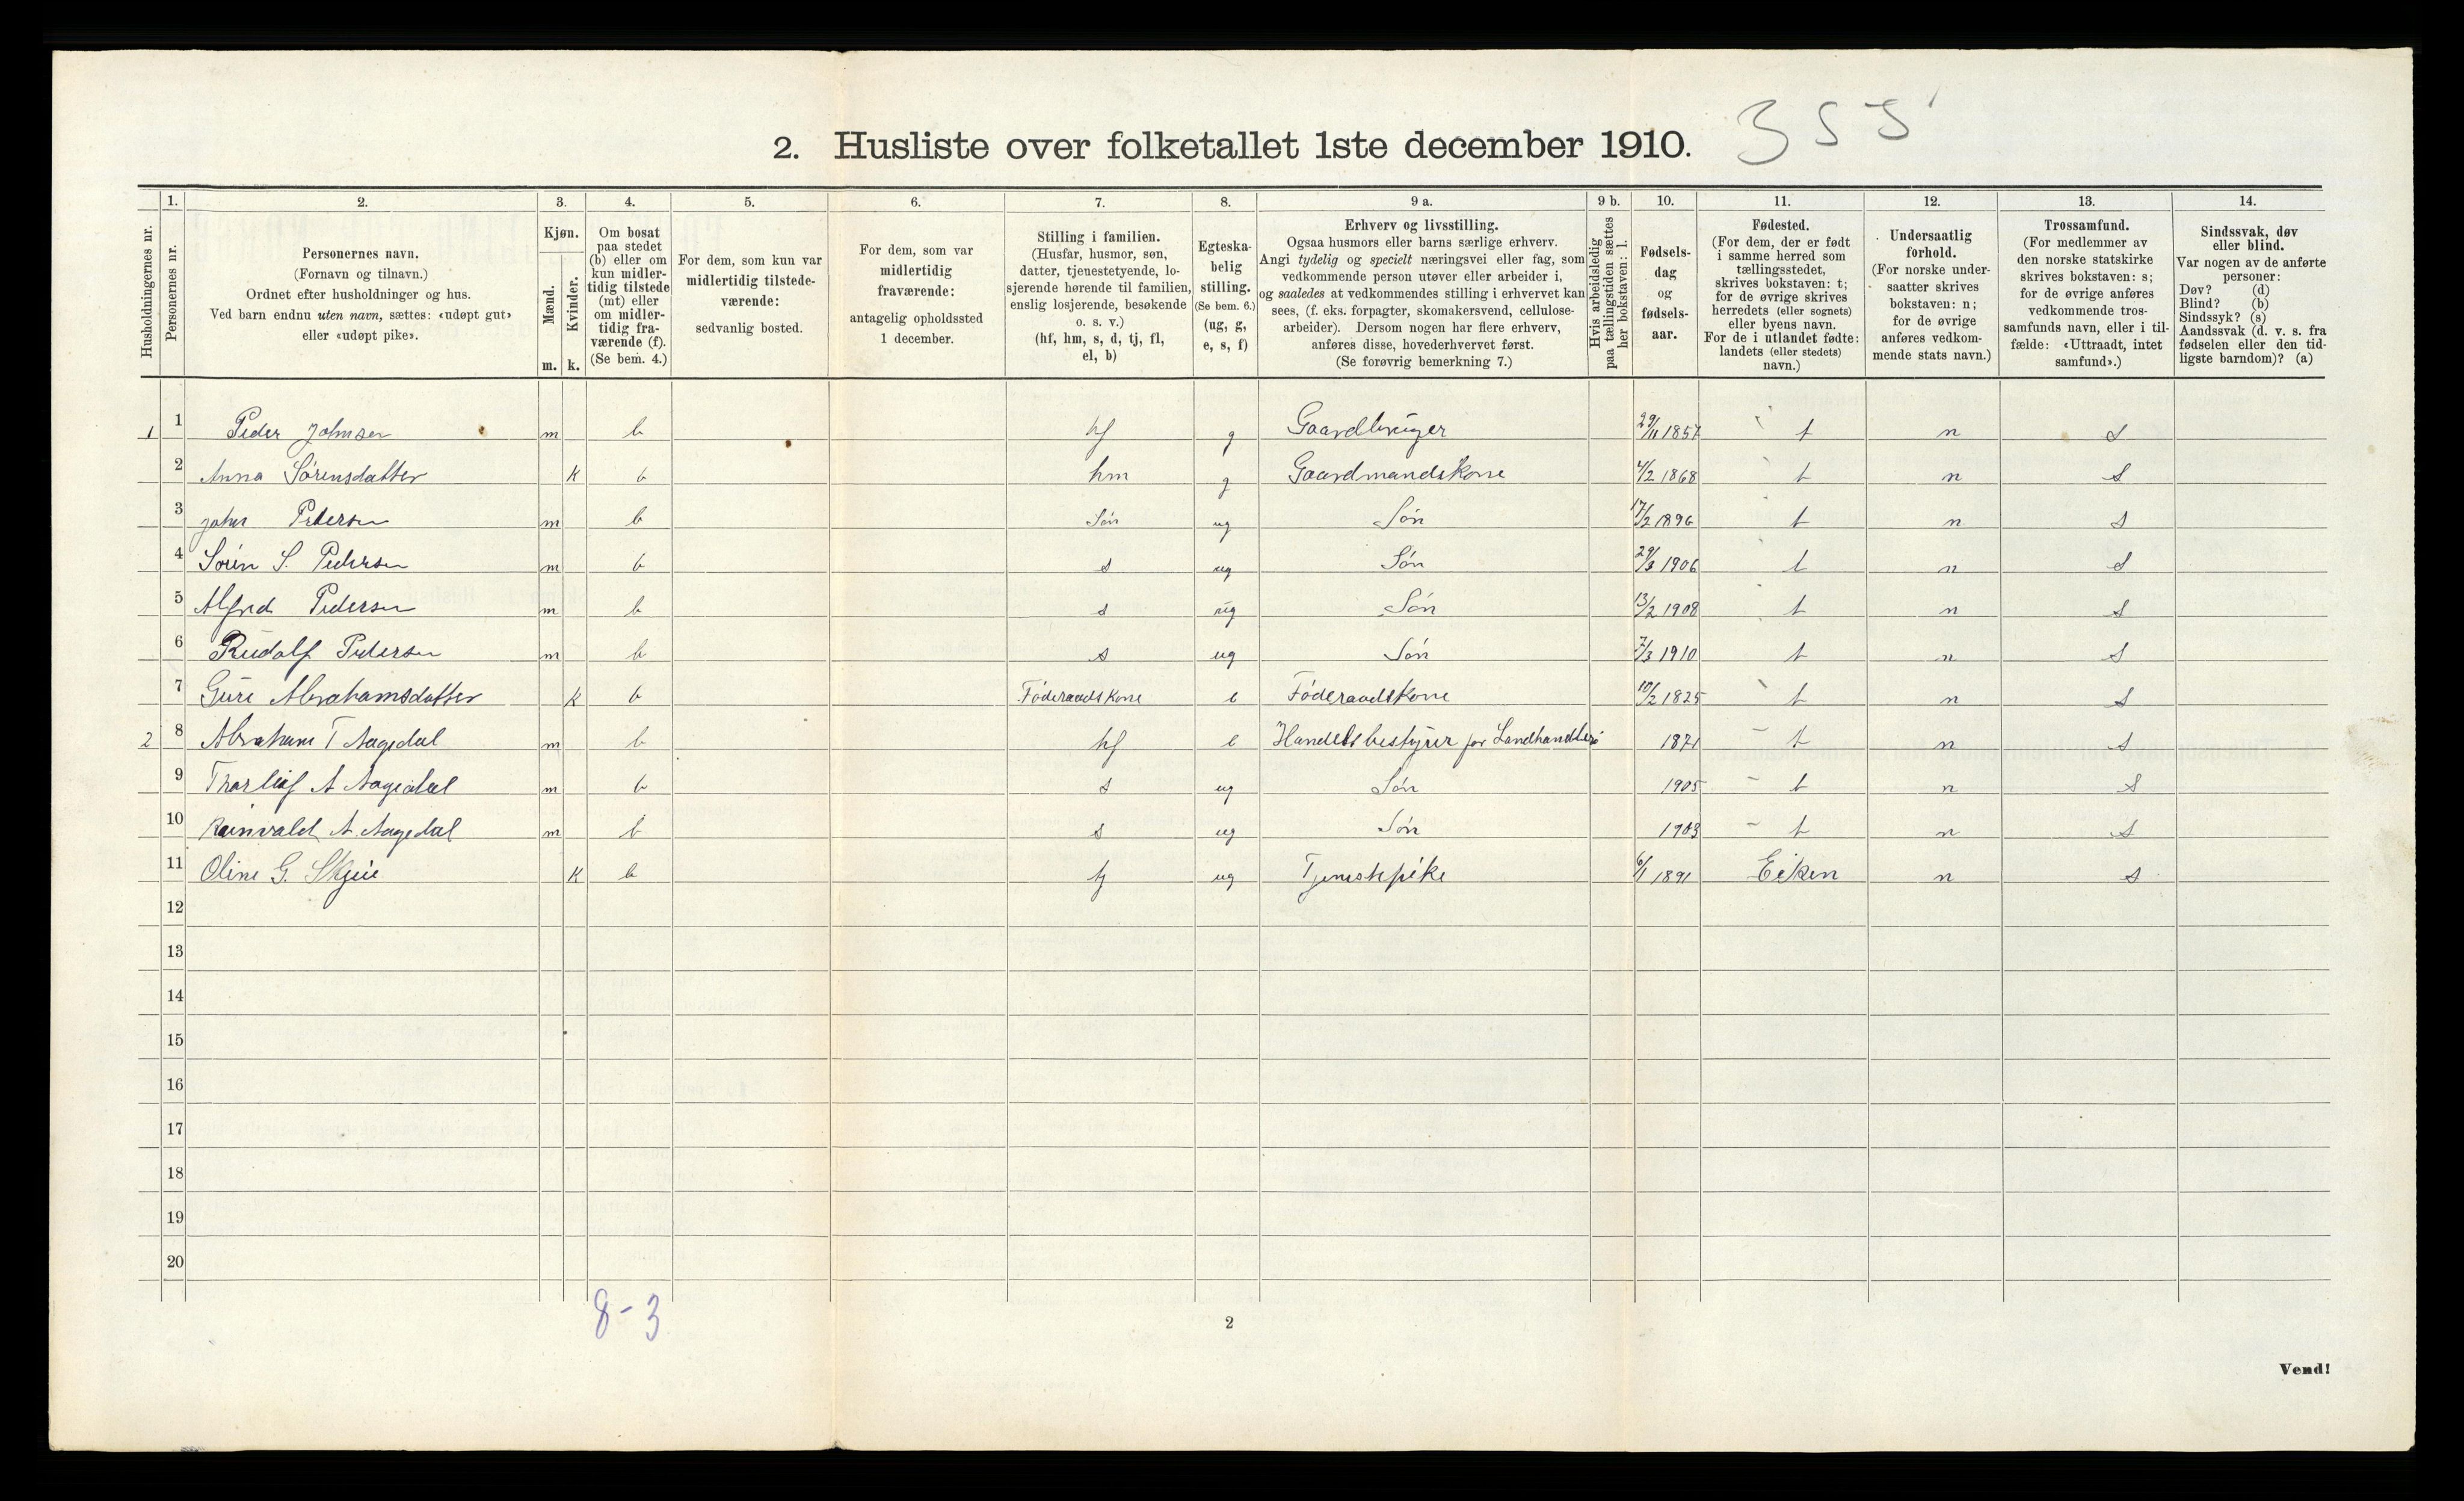 355
2. Husliste over folketallet 1ste december 1910.
Husholdningernes nr.
1. Personernes nr.
2. Personernes navn.
(Fornavn og tilnavn.)
Ordnet efter husholdninger og hus.
Ved barn endnu uten navn, sættes: «udøpt gut»
eller «udøpt pike».
3. Kjøn.
Mænd. m.
Kvinder. k.
4. Om bosat
paa stedet
(b) eller om
kun midler-
tidig tilstede
(mt) eller
om midler-
tidig fra-
værende (f).
(Se bem. 4.)
5. For dem, som kun var
midlertidig tilstede-
værende:
sedvanlig bosted.
6. For dem, som var
midlertidig
fraværende:
antagelig opholdssted
1 december.
7. Stilling i familien.
(Husfar, husmor, søn,
datter, tjenestetyende, lo-
sjerende hørende til familien,
enslig losjerende, besøkende
o. s. v.)
(hf, hm, s, d, tj, fl,
el, b)
8. Egteska-
belig
stilling.
(Se bem. 6.)
(ug, g,
e, s, f)
9 a. Erhverv og livsstilling.
Ogsaa husmors eller barns særlige erhverv.
Angi tydelig og specielt næringsvei eller fag, som
vedkommende person utøver eller arbeider i,
og saaledes at vedkommendes stilling i erhvervet kan
sees, (f. eks. forpagter, skomakersvend, cellulose-
arbeider). Dersom nogen har flere erhverv,
anføres disse, hovederhvervet først.
(Se forøvrig bemerkning 7.)
9 b. Hvis arbeidsledig
paa tællingstiden sættes
her bokstaven: l.
10. Fødsels-
dag
og
fødsels-
aar.
11. Fødested.
(For dem, der er født
i samme herred som
tællingsstedet,
skrives bokstaven: t;
for de øvrige skrives
herredets (eller sognets)
eller byens navn.
For de i utlandet fødte:
landets (eller stedets)
navn.)
12. Undersaatlig
forhold.
(For norske under-
saatter skrives
bokstaven: n;
for de øvrige
anføres vedkom-
mende stats navn.)
13. Trossamfund.
(For medlemmer av
den norske statskirke
skrives bokstaven: s;
for de øvrige anføres
vedkommende tros-
samfunds navn, eller i til-
fælde: «Uttraadt, intet
samfund».)
14. Sindssvak, døv
eller blind.
Var nogen av de anførte
personer:
Døv? (d)
Blind? (b)
Sindssyk? (s)
Aandssvak (d. v. s. fra
fødselen eller den tid-
ligste barndom)? (a)
1 1 Peder Johnsen m b hf g Gaardbruger 29/11 1857 t n s
2 Anna Sørensdatter k b hm g Gaardmandskone 4/2 1868 t n s
3 John Pedersen m b Søn ug Søn 17/2 1896 t n s
4 Søren S. Pedersen m b s ug Søn 29/3 1906 t n s
5 Alfred Pedersen m b s ug Søn 13/2 1908 t n s
6 Rudolf Pedersen m b s ug Søn 7/3 1910 t n s
7 Guri Abrahamsdatter k b Føderaadskone e Føderaadskone 10/2 1825 t n s
2 8 Abraham T Aagedal m b hf e Handelsbestyrer for Landhandleri 1871 t n s
9 Thorleif A Aagedal m b s ug Søn 1905 t n s
10 Reinvald A. Aagedal m b s ug Søn 1903 t n s
11 Oline G. Skjeie k b tj ug Tjenestepike 6/1 1891 Eiken n s
12
13
14
15
16
17
18
19
20
8-3
2
Vend!